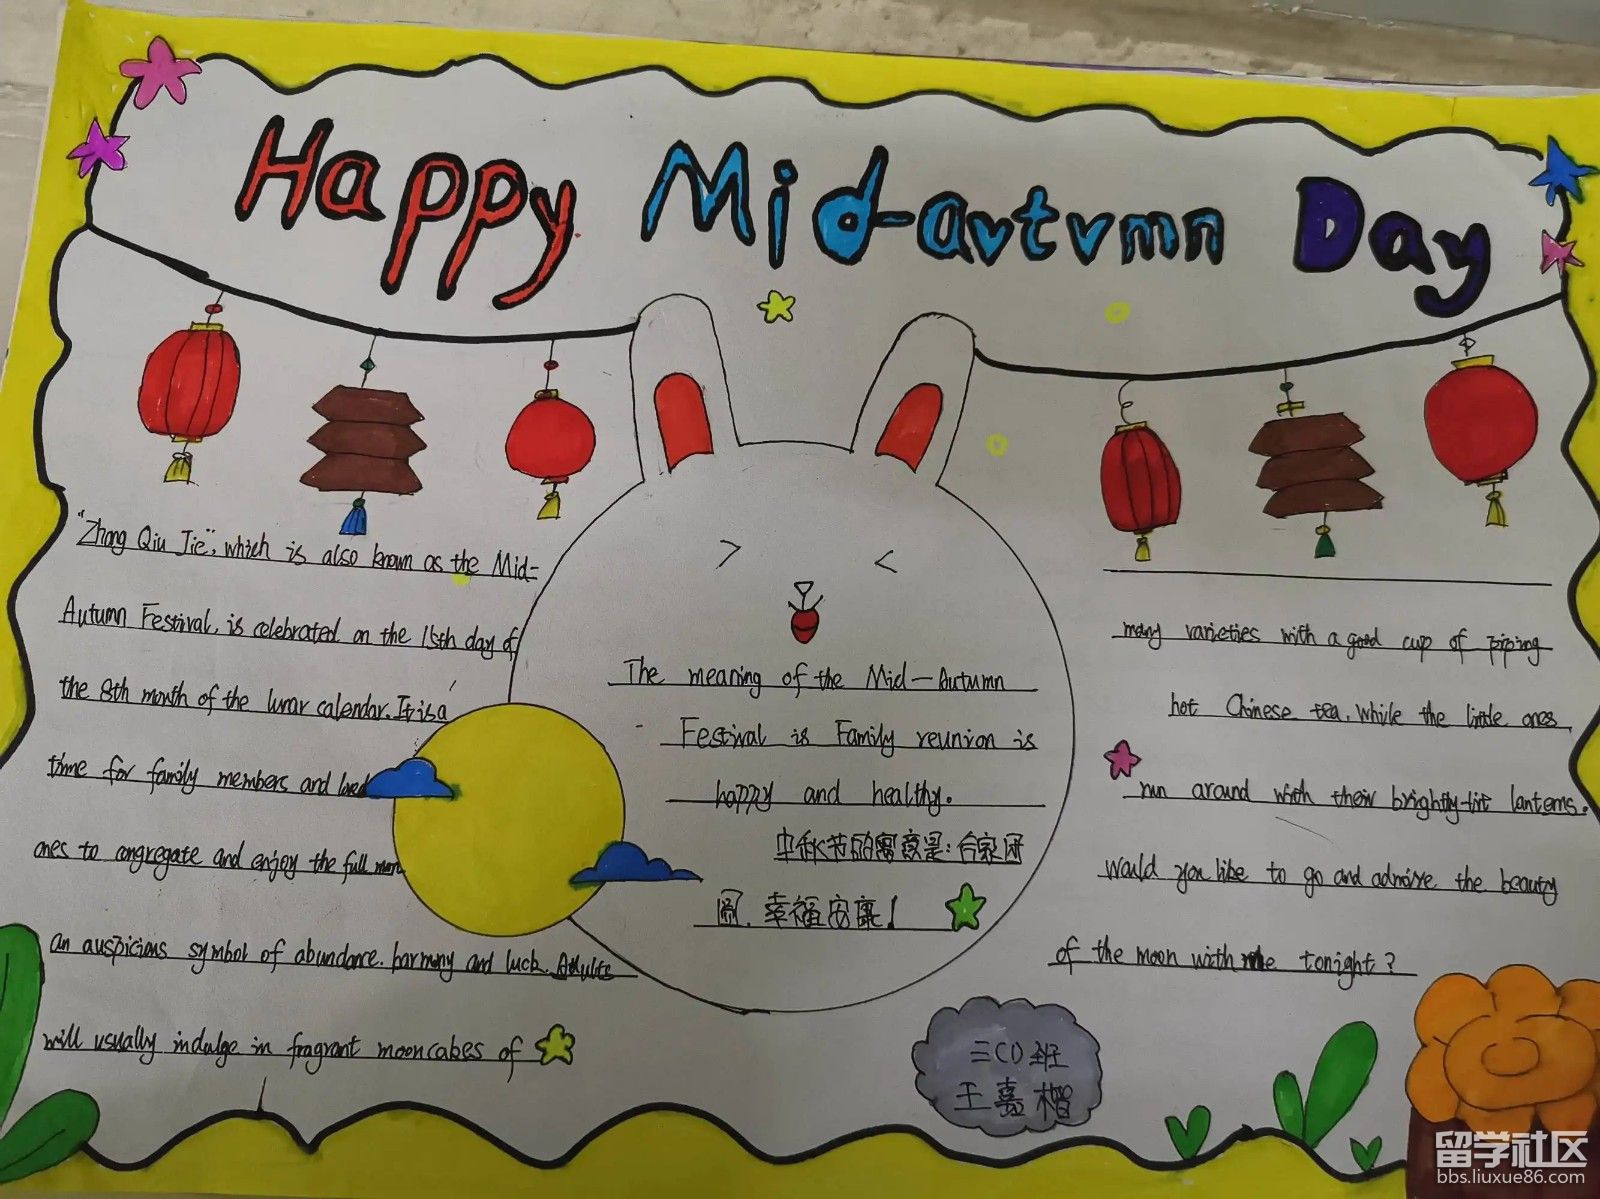 Happy Mid-autumn Day
"Zhong Qiu Jie", which is also known as the Mid-
Autumn Festival, is celebrated on the 15th day of
the 8th month of the lunar calendar. It is a
time for family members and loved
ones to congregate and enjoy the full moon
an auspicious symbol of abundance. harmony and luck. Adults
will usually indulge in fragrant mooncakes of
The meaning of the Mid-Autumn
Festival is Family reunion is
happy and healthy.
中秋节的寓意是:合家团
圆.幸福安康!
many varieties with a good cup of piping
hot Chinese tea, while the little ones
run around with their brightly-lit lanterns.
would you like to go and admire the beauty
of the moon with me tonight?
三(1)班
王嘉楷
留学社区
bbs.liuxue86.com